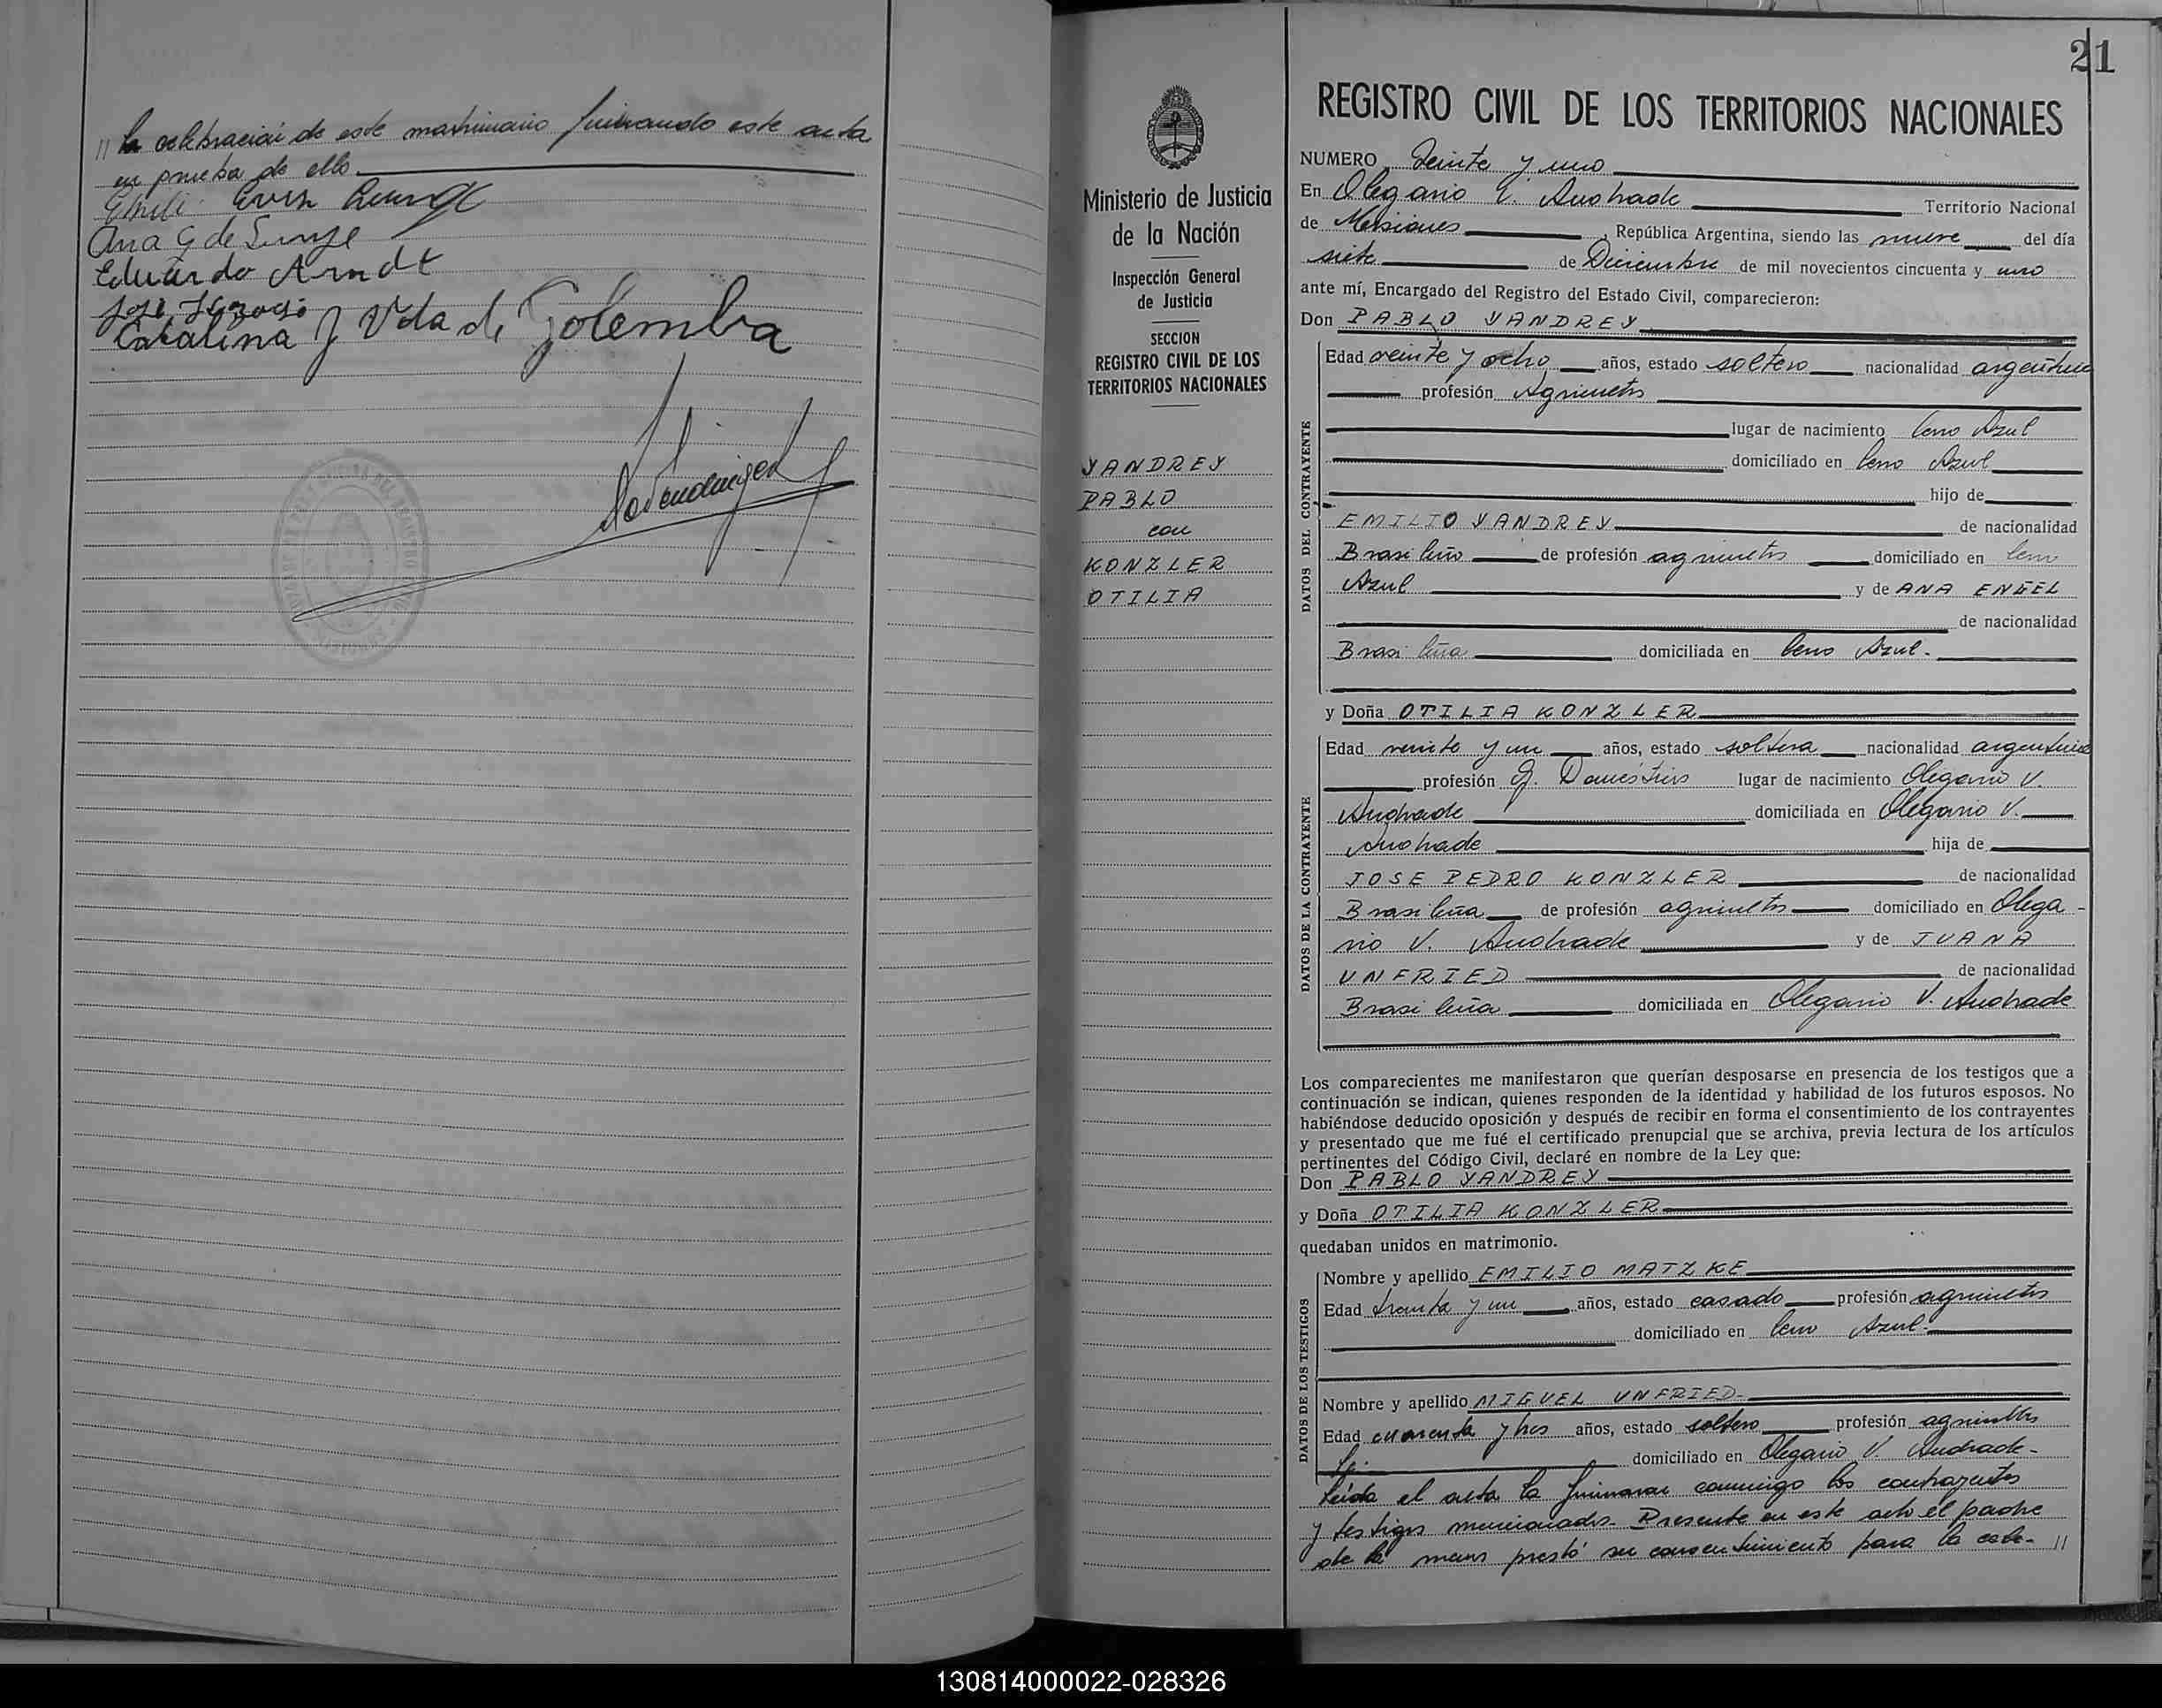 // la celebración de este matrimonio firmando este acta
en prueba de ello
Ana G de Lunge
Eduardo Arndt
José
Catalina J Vda de Golemba
21
Ministerio de Justicia
de la Nación
Inspección General
de Justicia
SECCION
REGISTRO CIVIL DE LOS
TERRITORIOS NACIONALES
YANDREY
PABLO
con
KONZLER
OTILIA
REGISTRO CIVIL DE LOS TERRITORIOS NACIONALES
NUMERO Veinte y uno
En Olegario V. Andrade Territorio Nacional
de Misiones, República Argentina, siendo las nueve del día
siete de Diciembre de mil novecientos cincuenta y uno
ante mí, Encargado del Registro del Estado Civil, comparecieron:
Don PABLO YANDREY
DATOS DEL CONTRAYENTE
Edad veinte y ocho años, estado soltero nacionalidad argentina
profesión Agricultor
lugar de nacimiento Cerro Azul
domiciliado en Cerro Azul
hijo de
EMILIO YANDREY de nacionalidad
Brasileño de profesión agricultor domiciliado en Cerro
Azul y de ANA ENGEL
de nacionalidad
Brasileña domiciliada en Cerro Azul.
y Doña OTILIA KONZLER
DATOS DE LA CONTRAYENTE
Edad veinte y un años, estado soltera nacionalidad argentina
profesión Q. Domésticos lugar de nacimiento Olegario V.
Andrade domiciliada en Olegario V.
Andrade hija de
JOSE PEDRO KONZLER de nacionalidad
Brasileña de profesión agricultor domiciliado en Olega-
rio V. Andrade y de JUANA
UNFRIED de nacionalidad
Brasileña domiciliada en Olegario V. Andrade
Los comparecientes me manifestaron que querían desposarse en presencia de los testigos que a
continuación se indican, quienes responden de la identidad y habilidad de los futuros esposos. No
habiéndose deducido oposición y después de recibir en forma el consentimiento de los contrayentes
y presentado que me fué el certificado prenupcial que se archiva, previa lectura de los artículos
pertinentes del Código Civil, declaré en nombre de la Ley que:
Don PABLO YANDREY
y Doña OTILIA KONZLER
quedaban unidos en matrimonio.
DATOS DE LOS TESTIGOS
Nombre y apellido EMILIO MATZKE
Edad treinta y un años, estado casado profesión agricultor
domiciliado en Cerro Azul.
Nombre y apellido MIGUEL UNFRIED
Edad cuarenta y tres años, estado soltero profesión agricultor
domiciliado en Olegario V. Andrade-
Leida el acta la firmaron conmigo los contrayentes
y testigos mencionados. Presente en este acto el padre
de la menor prestó su consentimiento para la cele- //
130814000022-028326